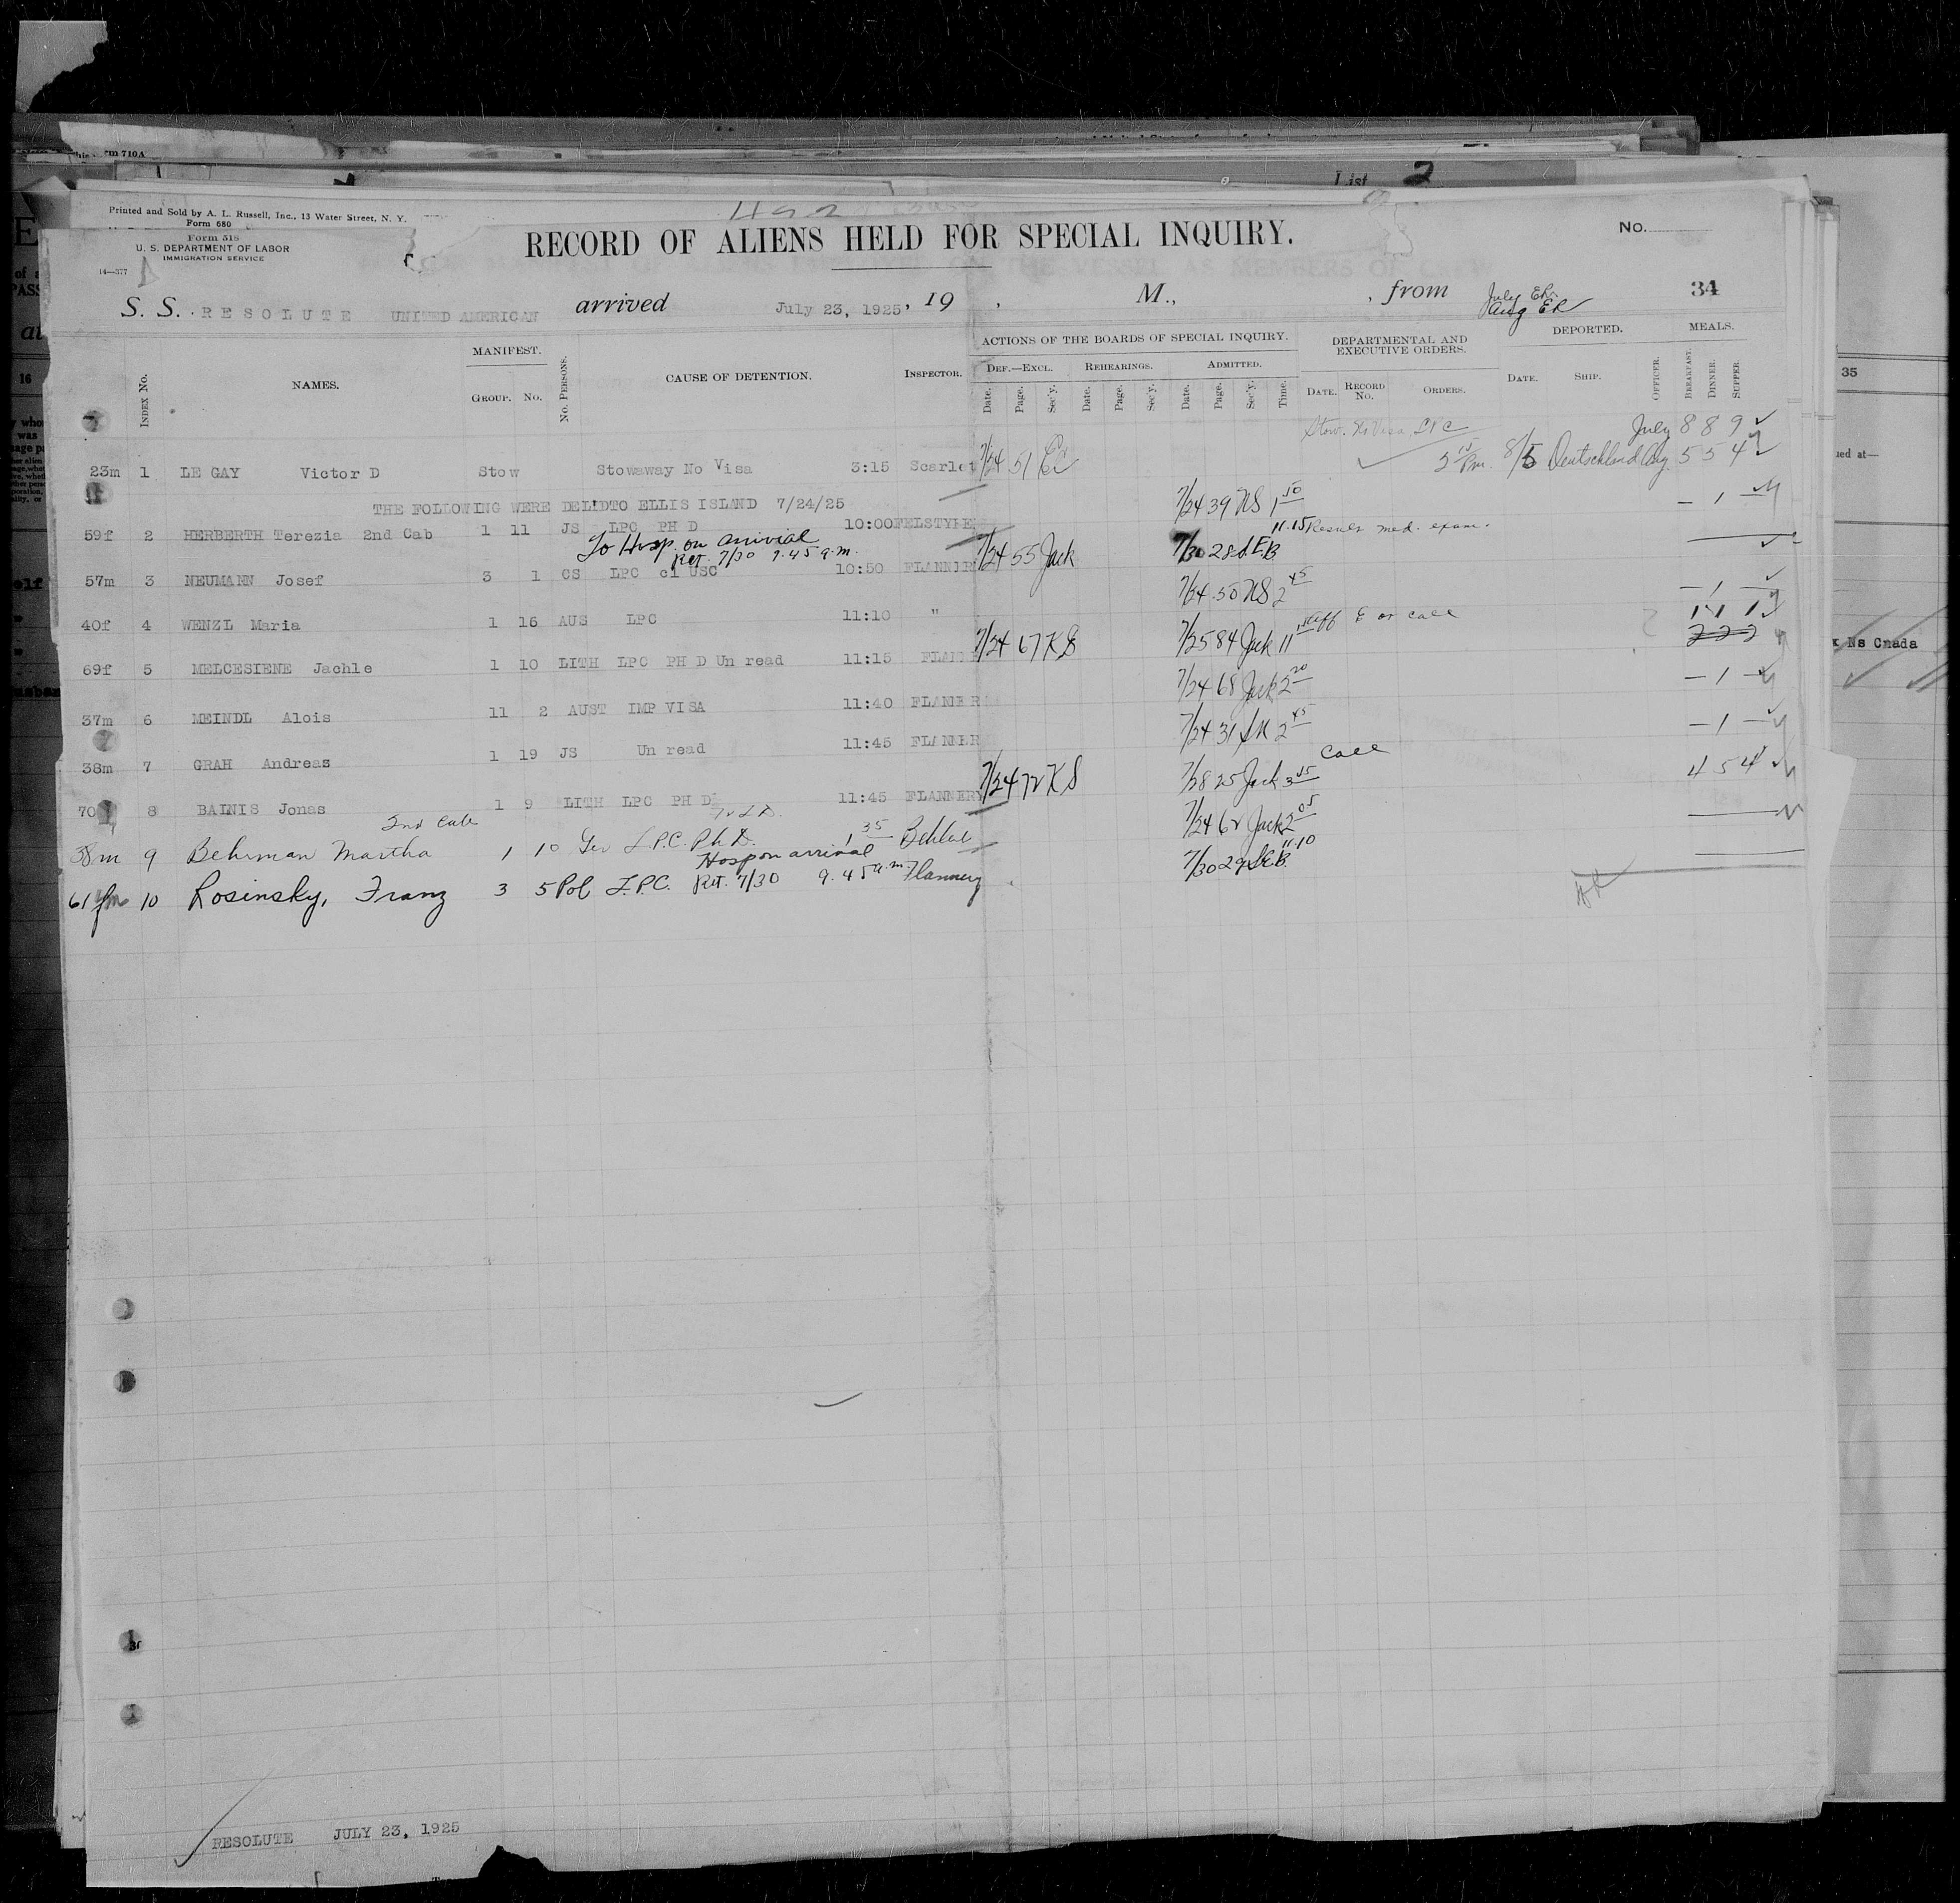 rm 710A
List 2
Printed and Sold by A. L. Russell, Inc., 13 Water Street, N. Y.
Form 680
Form 518
U. S. DEPARTMENT OF LABOR
IMMIGRATION SERVICE
14—377
RECORD OF ALIENS HELD FOR SPECIAL INQUIRY.
No.
S. S. RESOLUTE UNITED AMERICAN arrived July 23, 1925, 19 , M., , from July ER 34
Aug ER
MANIFEST. ACTIONS OF THE BOARDS OF SPECIAL INQUIRY. DEPARTMENTAL AND EXECUTIVE ORDERS. DEPORTED. MEALS.
INDEX No. NAMES. GROUP. No. No. PERSONS. CAUSE OF DETENTION. INSPECTOR. DEF.—EXCL. REHEARINGS. ADMITTED.
Date. Page. Sec'y. Date. Page. Sec'y. Date. Page. Sec'y. Time. DATE. RECORD No. ORDERS. DATE. SHIP. OFFICER. BREAKFAST. DINNER. SUPPER.
Stow. No Visa, LPC July 8 8 9
23m 1 LE GAY Victor D Stow Stowaway No Visa 3:15 Scarlet 7/24 51 8/5 Deutschland Aug. 5 5 4
THE FOLLOWING WERE DELIDTO ELLIS ISLAND 7/24/25
59f 2 HERBERTH Terezia 2nd Cab 1 11 JS LPC PH D 10:00 FELSTYHE 7/24 39 NS 1 50 — 1 —
To Hosp. on arrivial
Ret 7/30 9.45 a.m.
57m 3 NEUMANN Josef 3 1 CS LPC cl USC 10:50 FLANNER 7/24 55 Jack 7/30 28 S.E.B 11.15 med. exam.
40f 4 WENZL Maria 1 16 AUS LPC 11:10 " 7/24 50 NS 2 45 — 1 —
69f 5 MELCESIENE Jachle 1 10 LITH LPC PH D Un read 11:15 FLANN 7/24 67 KS 7/25 84 Jack 11 or call 1 1 1
2 2 2
37m 6 MEINDL Alois 11 2 AUST IMP VISA 11:40 FLANNER 7/24 68 Jack 2 20 — 1 —
38m 7 GRAH Andreas 1 19 JS Un read 11:45 FLANNER 7/24 31 2 45 — 1 —
70 8 BAINIS Jonas 1 9 LITH LPC PH D 11:45 FLANNERY 7/24 72 KS 7/28 25 Jack 3 45 Call 4 5 4
2nd Cab
38m 9 Behrman Martha 1 10 Ger L.P.C. Ph D. 1 35 7/24 62 Jack 2 05
Hosp on arrival
61 m 10 Rosinsky, Franz 3 5 Pol L.P.C. Ret. 7/30 9.45 a.m. Flannery 7/30 29 SEB. 11.10
35
ued at—
Ns Cnada
RESOLUTE JULY 23, 1925